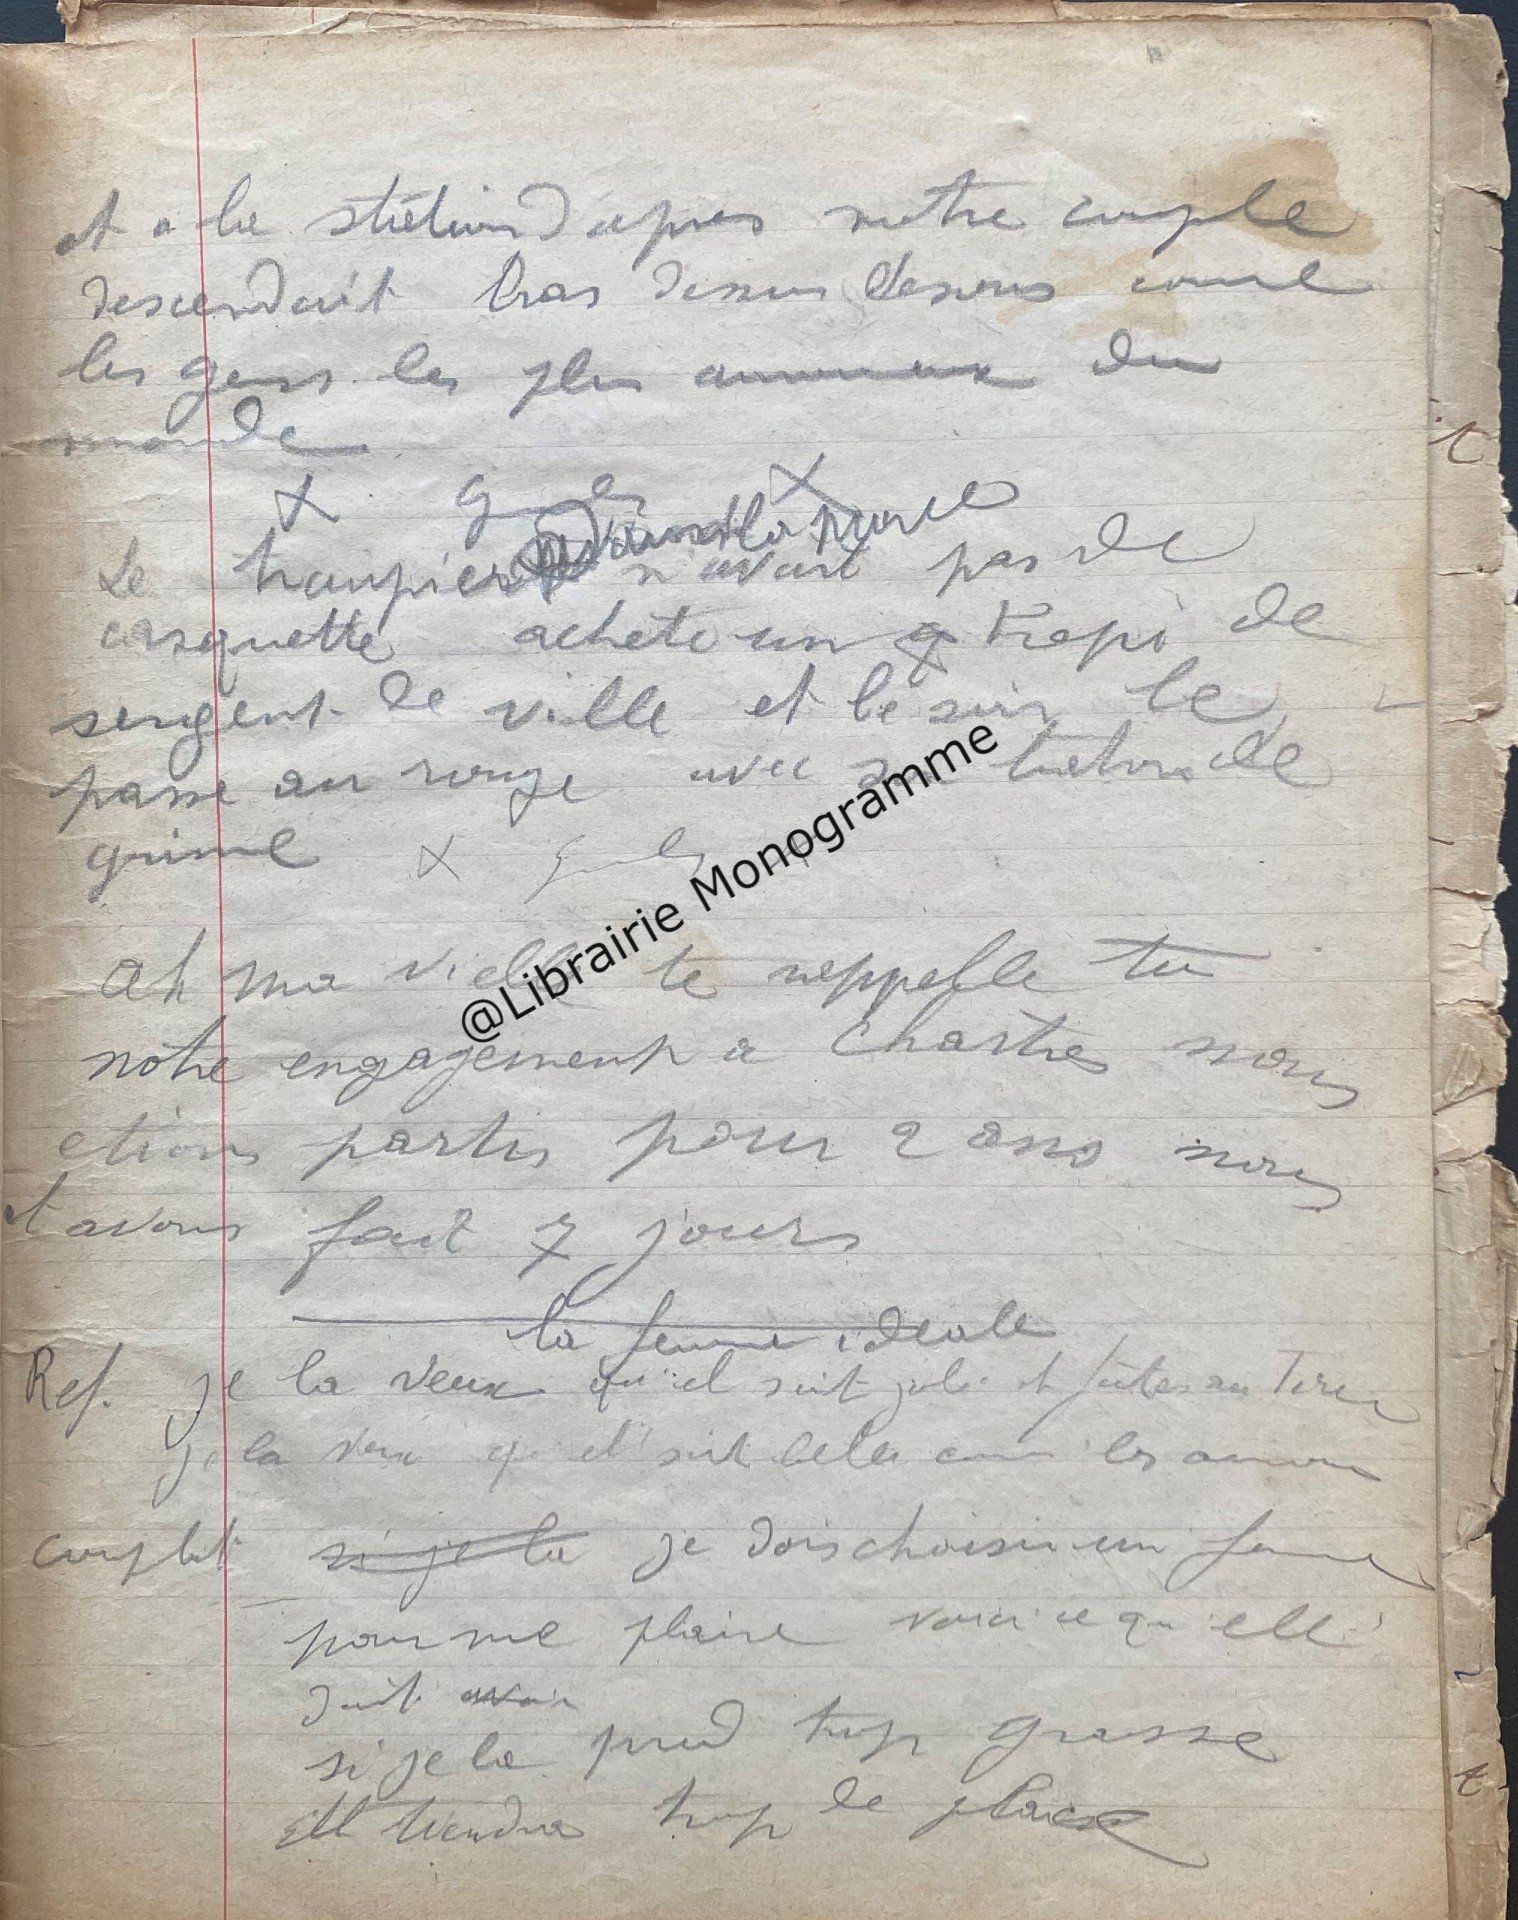 et a la station d'apres notre couple
descendait bras dessus dessous come
les gens les plus amoureux du
monde
x x
dans la puree
Le troupier n'avait pas de
casquette achete un kepi de
sergent de ville et le soir le
passe au rouge avec son baton de
grime x
ah ma vielle te rappelle tu
nôtre engagement a Chartres nous
etions partis pour 2 ans nous
et avons fait 7 jours
la femme ideale
Ref. je la veux qu'el soit joli et faites au tour
je la veux qu'el soit belle come les amours
couplet si je la je dois choisir un femme
pour me plaire voici ce qu'elle
doit avoir
si je la prend trop grasse
Ell tiendra trop de place
@Librairie Monogramme